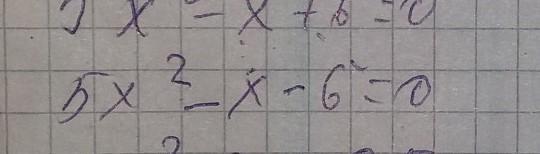 x² - x + 6 = 0
5x² - x - 6 = 0